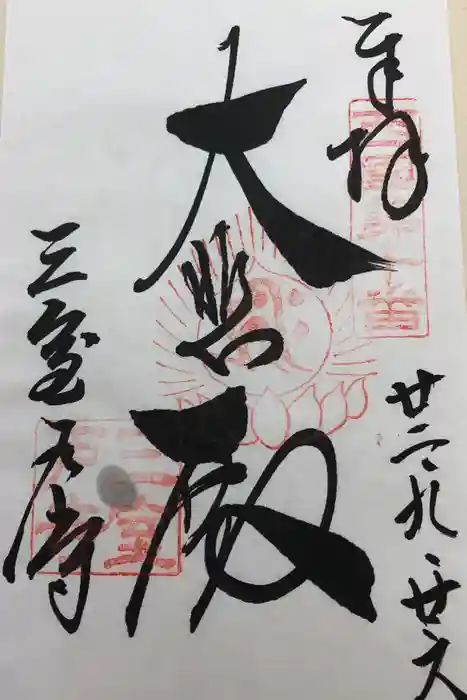 奉拝
廿二、九、廿六
大照殿
三室戸寺